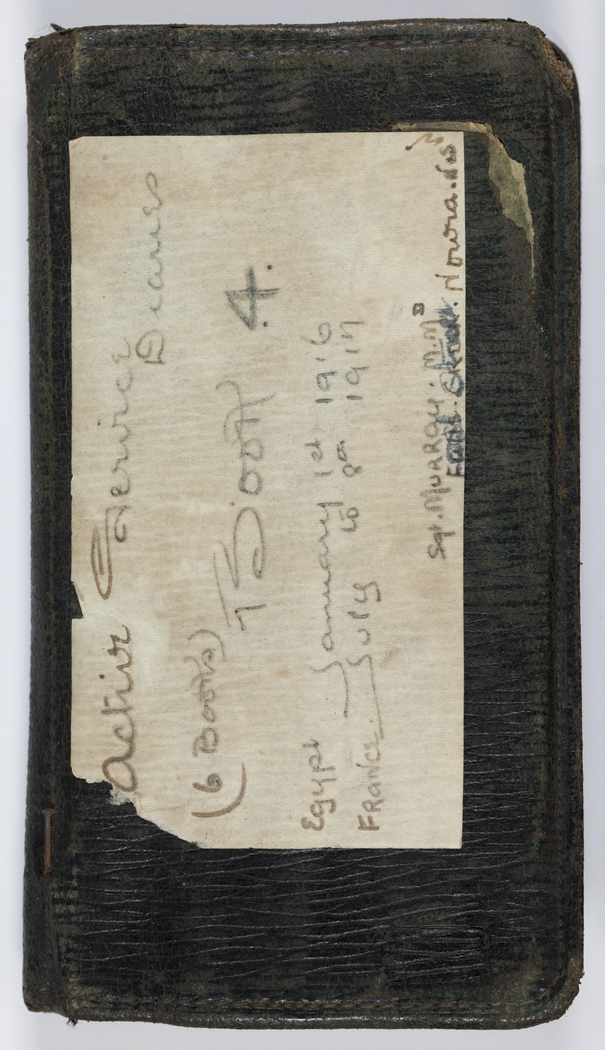 Active Service
Diaries
(6 Books)
Book 4.
Egypt January 1st 1916
France July to 1917
Sgt. MURRAY. M.M
Nowra.